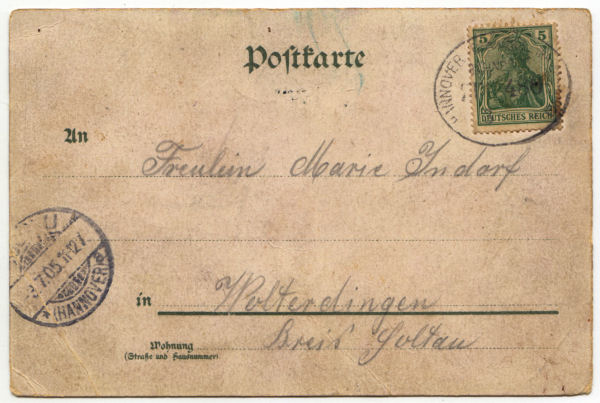 Postkarte
5 5
DEUTSCHES REICH
HANNOVER
An
Freulein Marie Indorf
U
3.7.05.11-12V.
* (HANNOVER) *
in Wolterdingen
Wohnung
(Straße und Hausnummer)
Kreis Soltau